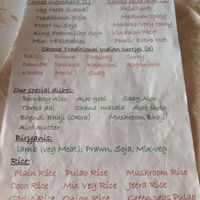 Choose Ingredient (1)
Veg Meat (Lamb)
Mild/
Traditional Soja
Medium/Spicy
Madras/Very spicy
King Prawn Like Soja
Vindaloo/Hot
Mix Vegetables
Phal/ Extra Hot
Choose Traditional Indian currys (2)
Balti Bhuna Chasney Curry
Dansak Dopiaza Rajastani Roganjosh
Karahi Methi Saag
Our special dishes:
Bombay Aloo Aloo gobi Saag Aloo
Tarka dal Chana masala Aloo chole
Bhendi Bhaji (Okra) Mushroom Bhaji
Aloo mutter
Biryanis:
Lamb (veg Meat), Prawn, Soja, Mix-veg
Rice:
Plain Rice Pulao Rice Mushroom Rice
Coco Rice Mix Veg Rice Jeera Rice
Garlic Rice Onion Rice Green peas Pulao